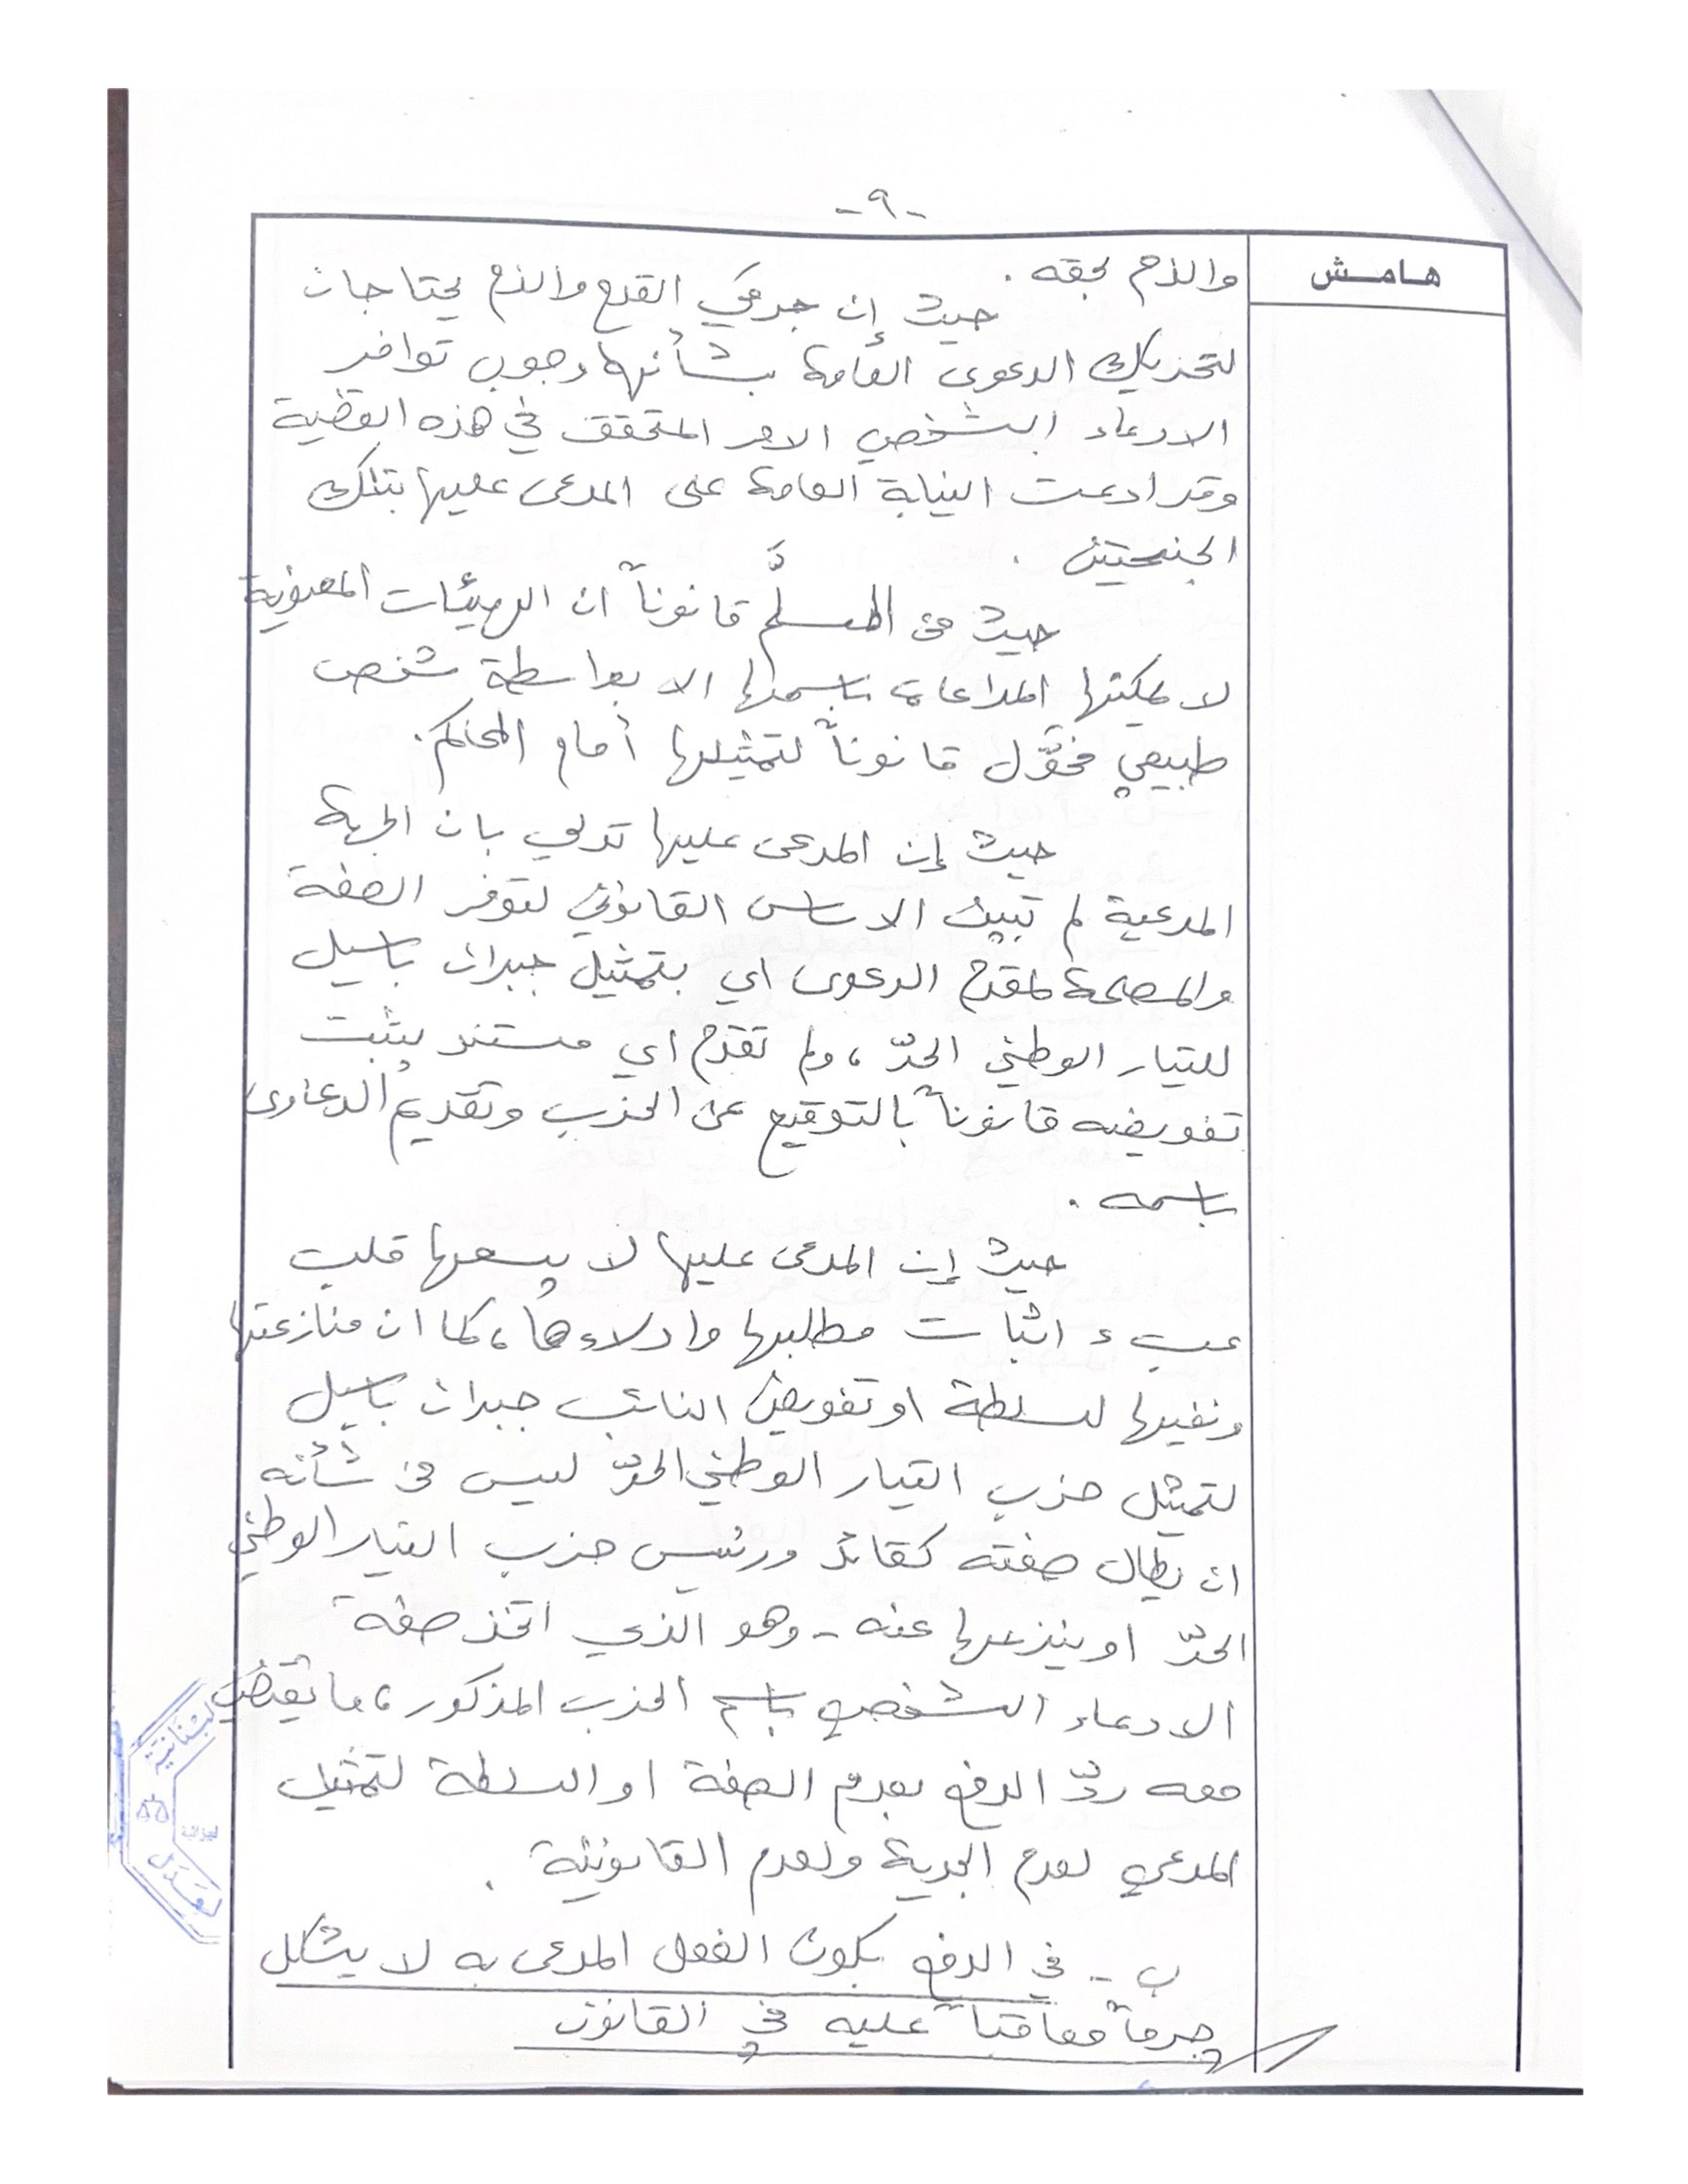 -٩-
هامش
والذم بحقه .
حيث إن جرمي القدح والذم يحتاجان
لتحريك الدعوى العامة بشأنها وجوب توافر
الادعاء الشخصي الامر المتحقق في هذه القضية
وقد ادعت النيابة العامة على المدعى عليها بتلك
الجنحتين .
حيث من المسلَّم قانوناً ان الهيئات المعنوية
لا يمكنها المداعاة باسمها الا بواسطة شخص
طبيعي مخوّل قانوناً لتمثيلها أمام المحاكم.
حيث إن المدعى عليها تدلي بان الجهة
المدعية لم تبين الاساس القانوني لتوفر الصفة
والمصلحة لمقدم الدعوى اي بتمثيل جبران باسيل
للتيار الوطني الحرّ ، ولم تقدم اي مستند يثبت
تفويضه قانوناً بالتوقيع عن الحزب وتقديم الدعاوى
باسمه .
حيث إن المدعى عليها لا يسعها قلب
عبء اثبات مطلبها وادلاءها، كما ان منازعتها
ونفيها لسلطة او تفويض النائب جبران باسيل
لتمثيل حزب التيار الوطني الحرّ ليس من شأنه
ان يطال صفته كقائد ورئيس حزب التيار الوطني
الحرّ او ينزعها عنه - وهو الذي اتخذ صفة
الادعاء الشخصي باسم الحزب المذكور، ما يقتضي
معه ردّ الدفع بعدم الصفة او السلطة لتمثيل
المدعي لعدم الجدية ولعدم القانونية .
ب - في الدفع بكون الفعل المدعى به لا يشكل
جرماً معاقباً عليه في القانون
لبنانية
العدل